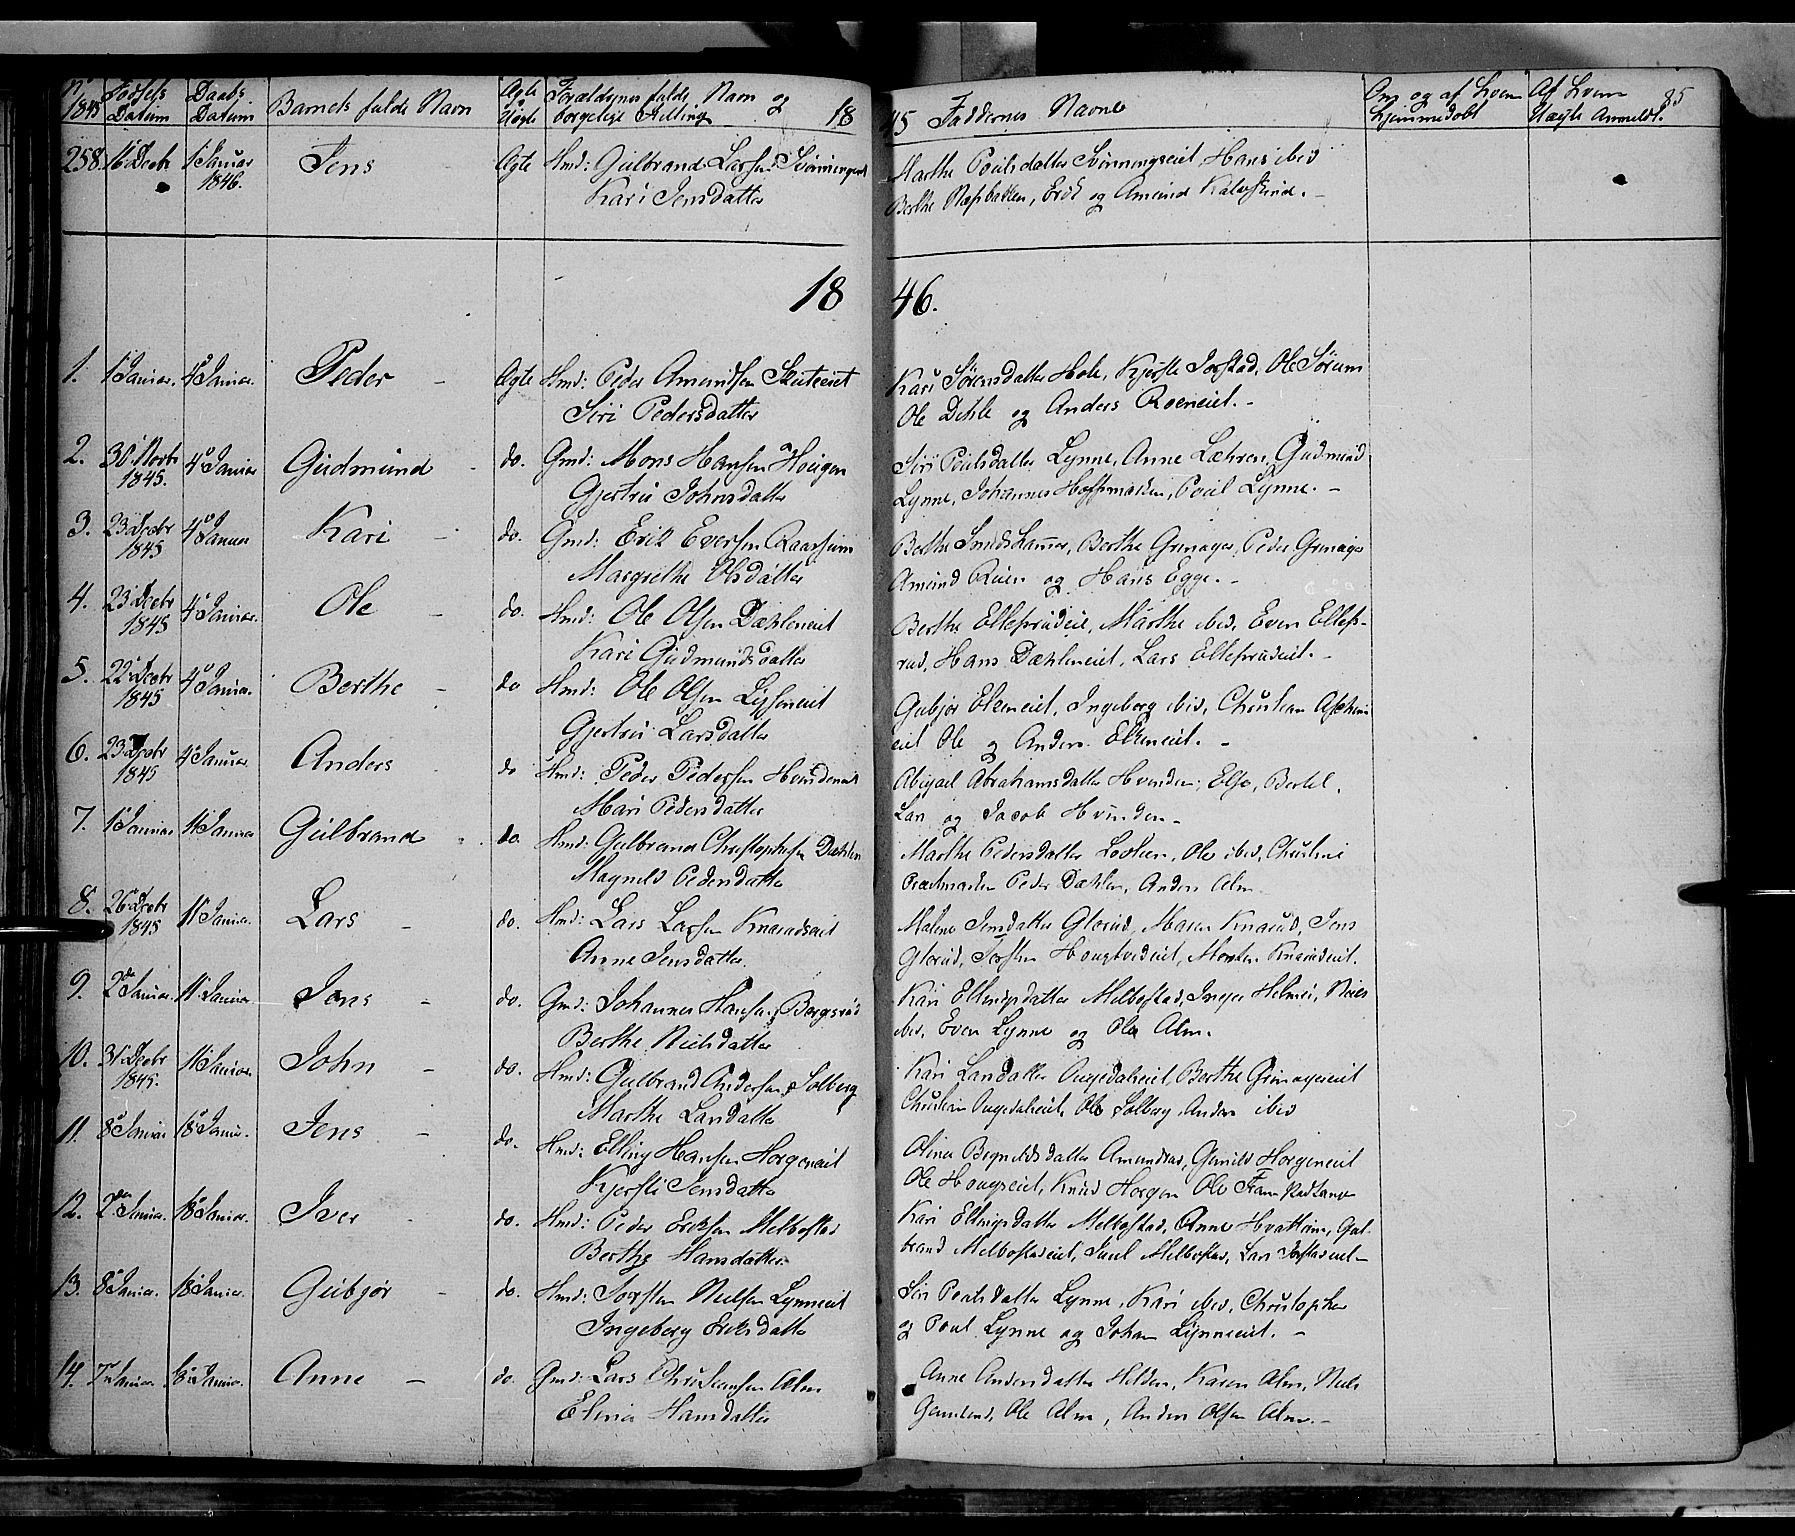 No 1845 Fødsels Datum Daabs Datum Barnets fulde Navn Ægte Uægte Forældrenes fulde Navn og borgelige Stilling 18
45 Faddernes Navne Om og af Hvem hjemmedøbt Af Hvem Uægte Anmeldt. 85
258. 16 Decbr 1 Januar 1846. Jens Ægte Hmd: Gulbrand Larsen Svinningeneiet
Kari Jensdatter
Marthe Poulsdatter Svinningseiet, Hans ibid
Berthe Næsbakken, Erik og Amund Kalvskind. -
18 46.
1. 1 Januar. 4 Januar. Peder - Ægte Hmd: Peder Amundsen Skuteeiet
Siri Pedersdatter
Kari Sørensdatter Hole, Kjersti Jorstad, Ole Sørum
Ole Dehle og Anders Roeneiet. -
2. 30 Novbr 1845. 4 Januar Gudmund - do. Gmd: Mons Hansen Hougen
Gjertru Johnsdatter
Siri Poulsdatter Lynne, Anne Læhren, Gudmund
Lynne, Johannes Hoffsmarken, Poul Lynne. -
3. 23 Decbr 1845 4 Januar Kari - do. Gmd: Erik Eversen Raassum
Margrethe Olsdatter
Berthe Smedshammer, Berthe Grinager, Peder Grinager
Amund Ruen og Hans Egge. -
4. 23 Decbr 1845 4 Januar. Ole - do. Hmd: Ole Olsen Dæhleneiet
Kari Gudmundsdatter
Berthe Ellefsrudeiet, Marthe ibid, Even Ellefs-
rud, Hans Dæhleneiet, Lars Ellefsrudeiet. -
5. 22 Decbr 1845 4 Januar. Berthe - do Hmd: Ole Olsen
Gjertru Larsdatter
Gubjør Elkeneiet, Ingeborg ibid, Christian
eiet Ole og Anders Elkeneiet. -
6. 23 Decbr 1845 4 Januar Anders do Hmd: Peder Pedersen Hvindeneiet
Mari Pedersdatter
Abigael Abrahamsdatter Hvinden, Else, Bertel,
Lars og Jacob Hvinden -
7. 1 Januar 11 Januar Gulbrand do. Hmd: Gulbrand Christophersen Dæhlen
Magnild Pedersdatter
Marthe Pedersdatter Lovlien, Ole ibid, Christine
Peder Dæhlen, Anders Alm
8. 26 Decbr 1845 11 Januar. Lars - do. Hmd: Lars Larsen Knarudseiet
Anne Jensdatter.
Malene Jensdatter Glorud, Maren Knarud, Jens
Glorud, Torsten Hougtvedteiet, Morten Knarudeiet.
9. 2 Januar. 11 Januar. Jens - do. Gmd: Johannes Hansen Bergsrud
Berthe Nielsdatter
Kari Ellingsdatter Melbostad, Inger Helmei, Niels
ibid, Even Lynne og Ole Alm.
10. 31 Decbr 1845. 11 Januar. John - do. Hmd: Gulbrand Andersen Solberg
Marthe Larsdatter
Kari Larsdatter Augedaleiet, Berthe Grinagereiet
Christian Augedaleiet, Ole Solberg, Anders ibid
11. 8 Januar 18 Januar. Jens - do. Hmd: Elling Hansen Horgeneiet
Kjersti Jensdatter
Olina Begnildsdatter Amundrud, Gunild Horgeneiet
Ole Hougseiet, Knud Horgen Ole
12. 2 Januar. 18 Januar. Iver - do. Hmd: Peder Eriksen Melbostad
Berthe Hansdatter.
Kari Ellingsdatter Melbostad, Anne Hvattum, Gul-
brand Melbostadeiet, Juul Melbostad, Lars Jorstadeiet -
13. 8 Januar. 18 Januar. Gubjør - do. Hmd: Torsten Nielsen Lynneeiet
Ingeborg Eriksdatter
Siri Poulsdatter Lynne, Kari ibid, Christopher
og Poul Lynne og Johan Lynneeiet. -
14. 7 Januar. 18 Januar. Anne - do. Gmd: Lars Christiansen Alm
Elena Hansdatter
Anne Andersdatter Hilden, Karen Alm, Niels
Ole Alm, Anders Olsen Alm. -